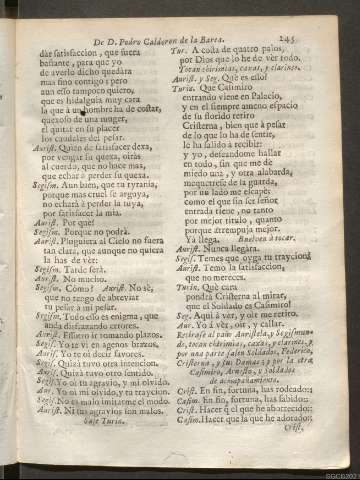 De D. Pedro Calderon de la Barca. 245
dàr satisfaccion, que fuera
bastante, para que yo
de averlo dicho quedàra
mas fino contigo; pero
aun esso tampoco quiero,
que es hidalguia muy cara
la que à un hombre ha de costar,
quexoso de una muger,
el quitar en su placer
los caudales del pesar.
Aurist. Quien de satisfacer dexa,
por vengar su quexa, otras
al cuerda, que no hace mas,
que echar à perder su quexa.
Segism. Aun bien, que tu tyrania,
porque mas cruel se arguya,
no echarà à perder la tuya,
por satisfacer la mia.
Aurist. Por què?
Segism. Porque no podrà.
Aurist. Pluguiera al Cielo no fuera
tan clara, que aunque no quiera
la has de vèr.
Segism. Tarde serà.
Aurist. No mucho.
Segism. Còmo? Aurist. No sè,
que no tengo de abreviar
tu pesar à mi pesar.
Segism. Todo esso es enigma, que
anda disfrazando errores.
Aurist. Essotro ir tomando plazos.
Segism. Yo te vì en agenos brazos.
Aurist. Yo te oì decir favores.
Segism. Quizà tuvo otra intencion.
Aurist. Quizà tuvo otro sentido.
Segism. Yo oì tu agravio, y mi olvido.
Aur. Yo oì mi olvido, y tu traycion.
Segism. No es malo imitarme el modo.
Aurist. Ni tus agravios son malos.
Sale Turin.
Tur. A costa de quatro palos,
por Dios que lo he de vèr todo.
Tocan chirimias, caxas, y clarines.
Aurist. y Seg. Què es esso?
Turin. Que Casimiro
entrando viene en Palacio,
y en el siempre ameno espacio
de su florido retiro
Cristerna, bien que à pesar
de lo que lo ha de sentir,
le ha salido à recibir:
y yo, deseandome hallar
en todo, sin que me de
miedo una, y otra alabarda,
mequetrefe de la guarda,
por un lado me escapè:
como el que sin ser señor
entrada tiene, no tanto
por mejor titulo, quanto
porque estrempuja mejor.
Yà llega. Buelven à tocar.
Aurist. Nunca llegàra.
Segis. Temes que oyga tu traycion?
Aurist. Temo la satisfaccion,
que no mereces.
Turin. Què cara
pondrà Cristerna al mirar,
que el Soldado es Casimiro!
Seg. Aqui à vèr, y oìr me retiro.
Aur. Yo à vèr, oìr, y callar.
Retiranse al paño Auristela, y Segismundo,
tocan chirimias, caxas, y clarines, y
por una parte salen Soldados, Federico,
Cristerna, y sus Damas; y por la otra
Casimiro, Arnesto, y Soldados
de acompañamiento.
Crist. En fin, fortuna, has rodeado::
Casim. En fin, fortuna, has sabido::
Crist. Hacer q̃ el que he aborrecido::
Casim. Hacer que la que he adorado::
Crist.
SGCB202